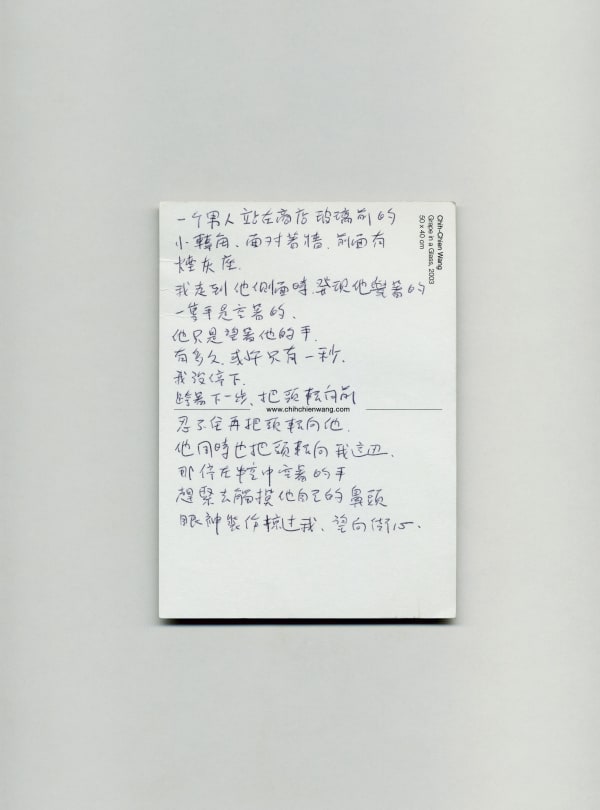 一个男人站在商店玻璃前的
小轉角、面对著墙、前面有
煙灰座.
我走到他側面時、發現他舉著的
一隻手是空著的、
他只是望著他的手.
有多久、或许只有一秒.
我没停下.
跨著下一步、把頭転向前
忍不住再把頭転向他.
他同時也把頭転向我這边、
那停在半空中空著的手
趕緊去觸摸他自己的鼻頭
眼神裝作掠过我、望向街心.
www.chihchienwang.com
Chih-Chien Wang
Grape in a Glass, 2003
50 x 40 cm